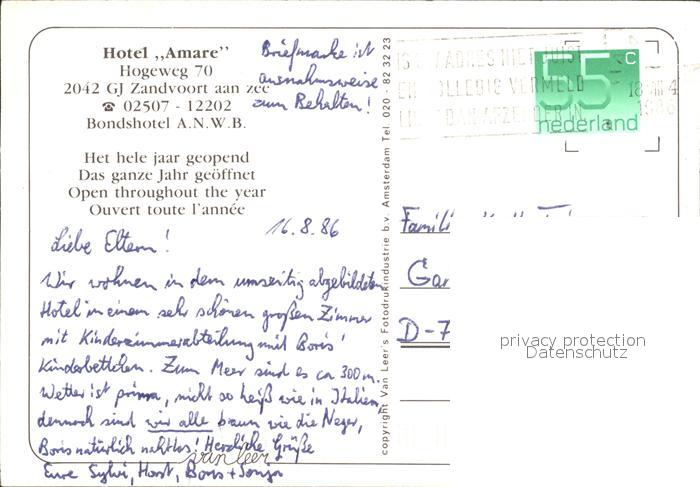 Hotel „Amare”
Hogeweg 70
2042 GJ Zandvoort aan zee
☎ 02507 - 12202
Bondshotel A.N.W.B.
Het hele jaar geopend
Das ganze Jahr geöffnet
Open throughout the year
Ouvert toute l'année
Briefmarke ist
ausnahmsweise
zum Behalten!
16.8.86
Liebe Eltern!
Wir wohnen in dem umseitig abgebildeten
Hotel in einem sehr schönen großen Zimmer
mit Kinderzimmerabteilung mit Boris'
Kinderbettchen. Zum Meer sind es ca 300 m.
Wetter ist prima, nicht so heiß wie in Italien,
dennoch sind wir alle braun wie die Neger,
Boris natürlich nahtlos! Herzliche Grüße
van Leer
Eure Sylvi, Horst, Boris + Sonja
copyright Van Leer's Fotodrukindustrie b.v. Amsterdam Tel. 020 - 82 32 23
IS ADRES HIER JUIST
EN VOLLEDIG VERMELD
DAN AFZENDER IN
55 c
nederland
1986
Famili
Gar
D-7
privacy protection
Datenschutz